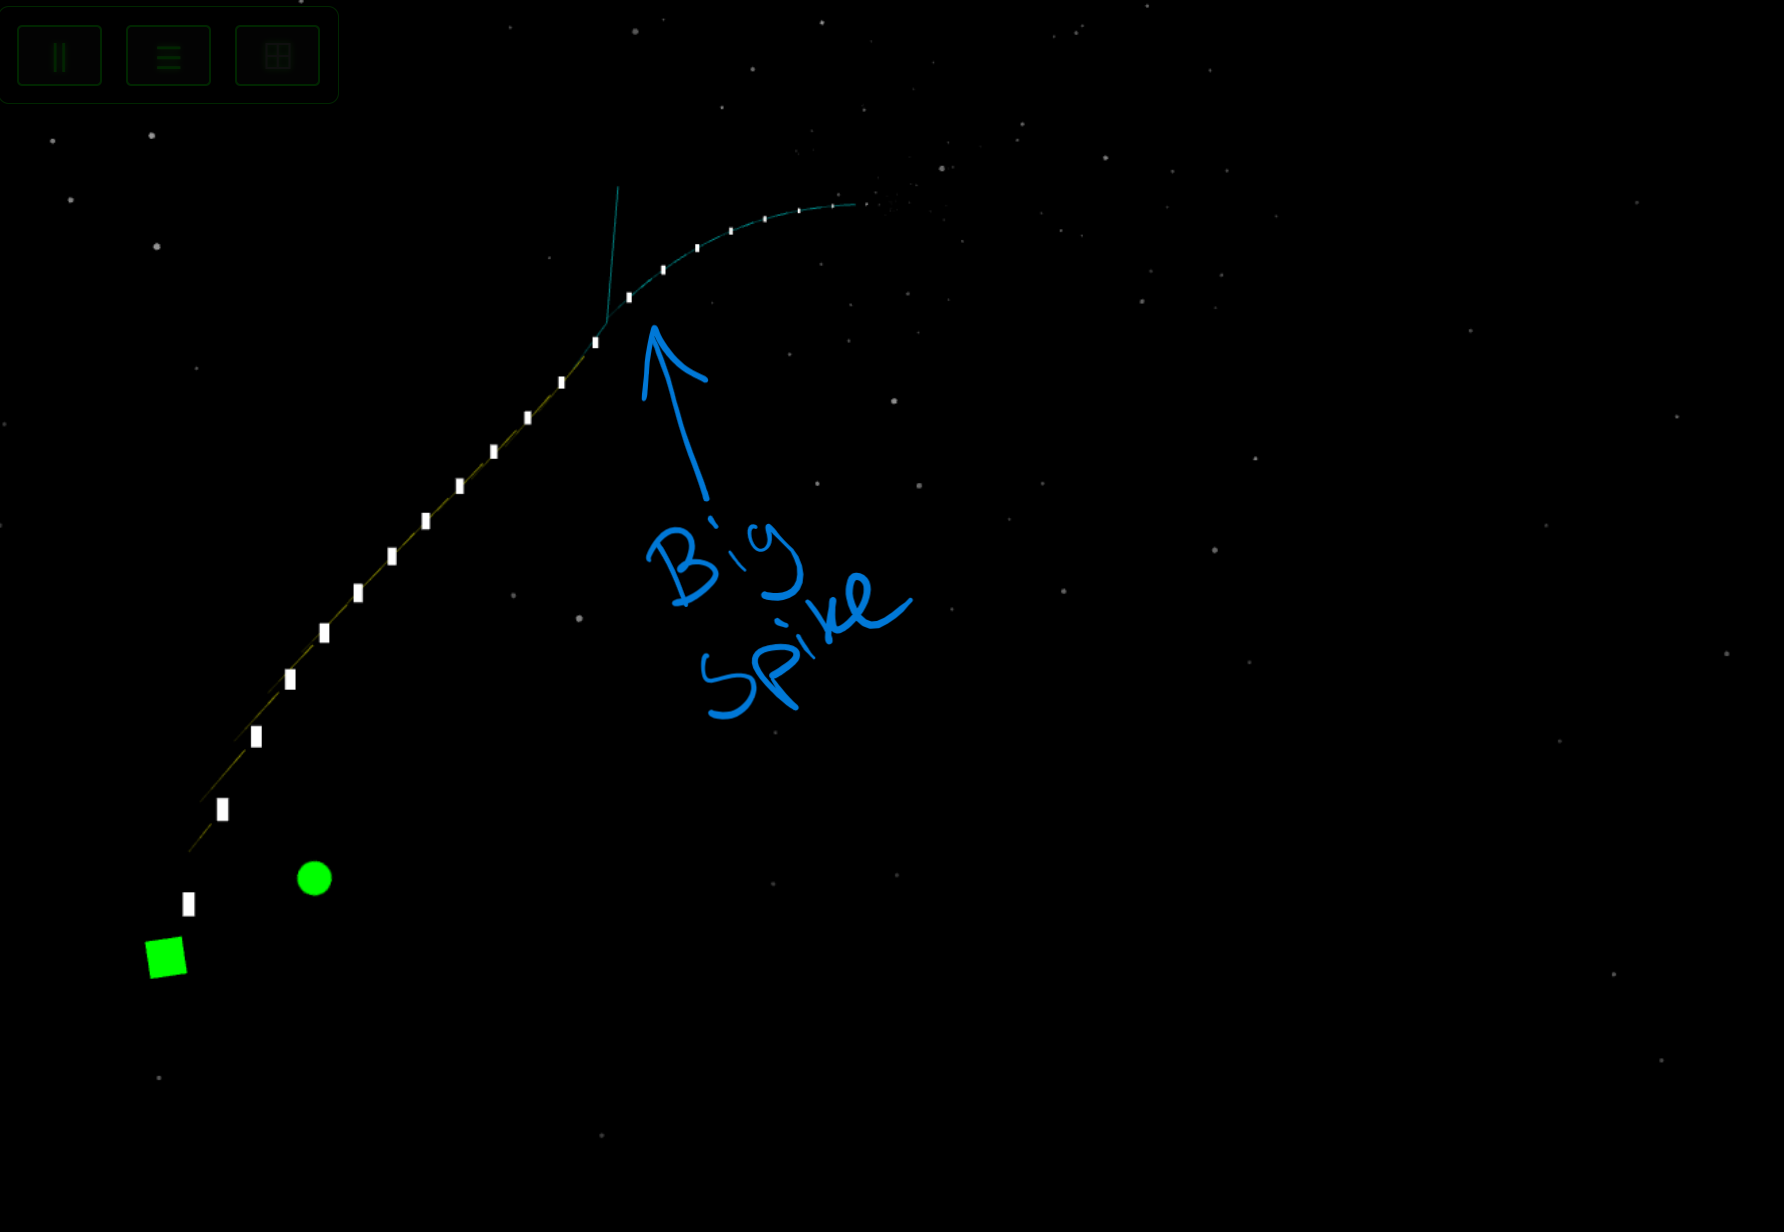 Big
Spike